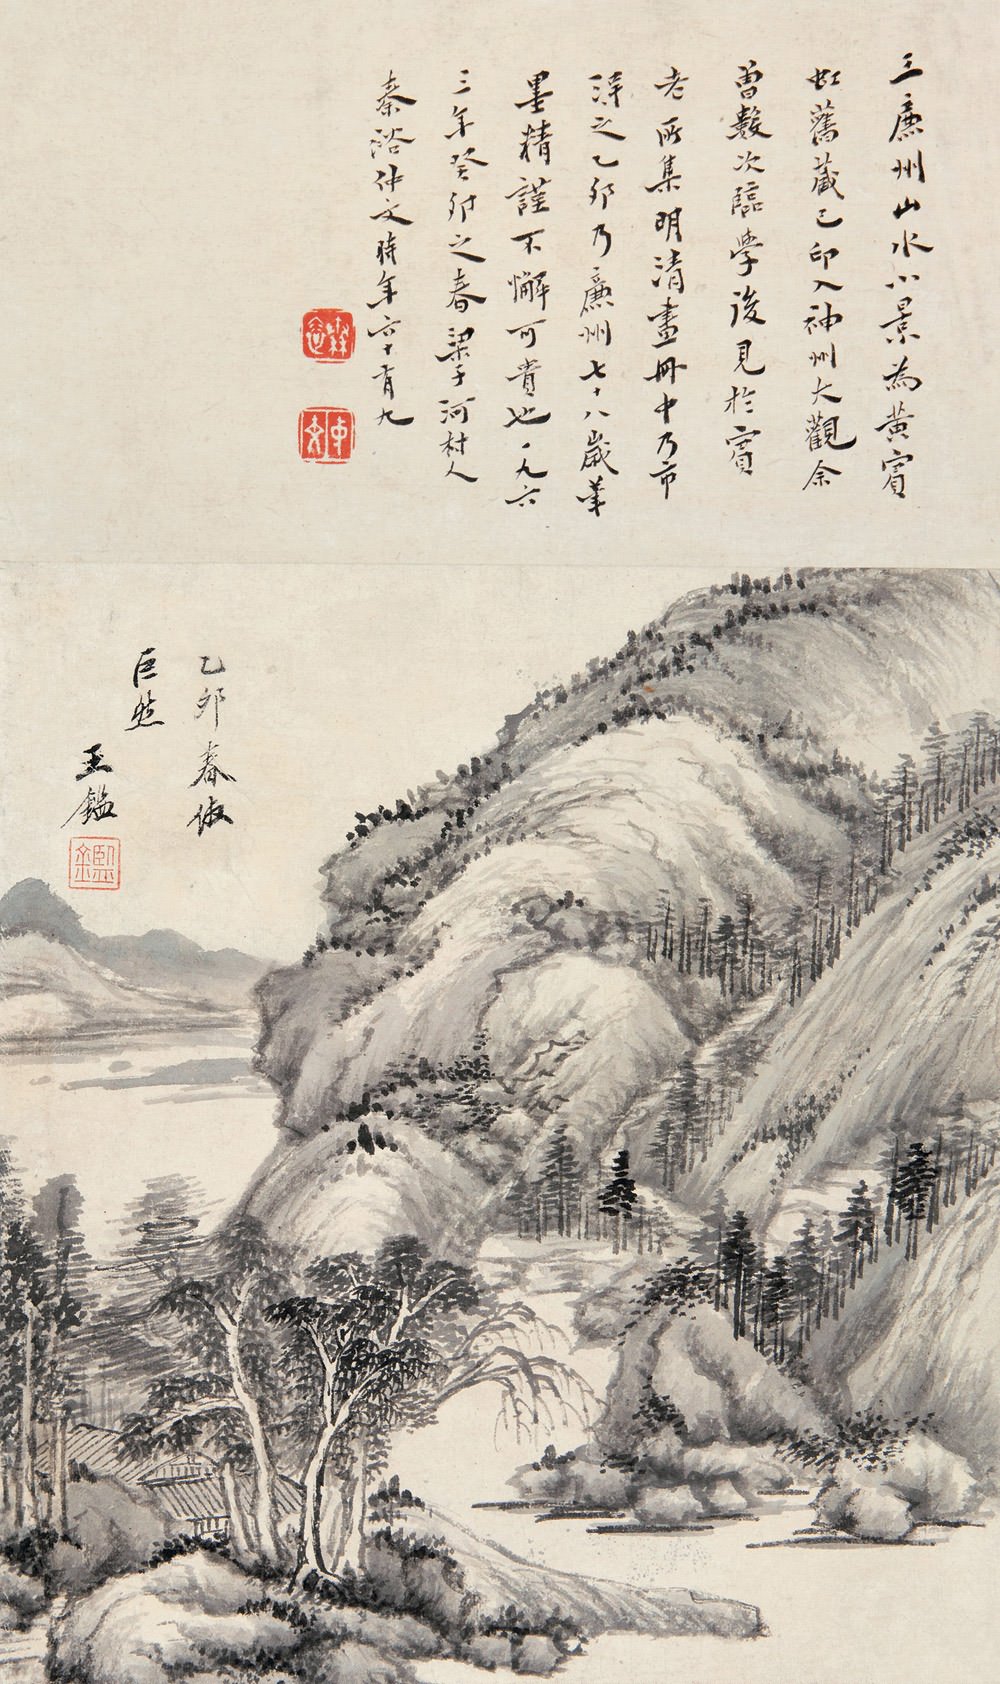 王廉州山水小景為黃賓
虹舊藏已印入神州大觀余
曾數次臨學後見於賓
老所集明清畫冊中乃市
得之乙卯乃廉州七十八歲筆
墨精謹不懈可貴也一九六
三年癸卯之春梁子河村人
秦裕仲文時年六十有九
乙卯春倣
巨然
王鑑
仲文
鑑